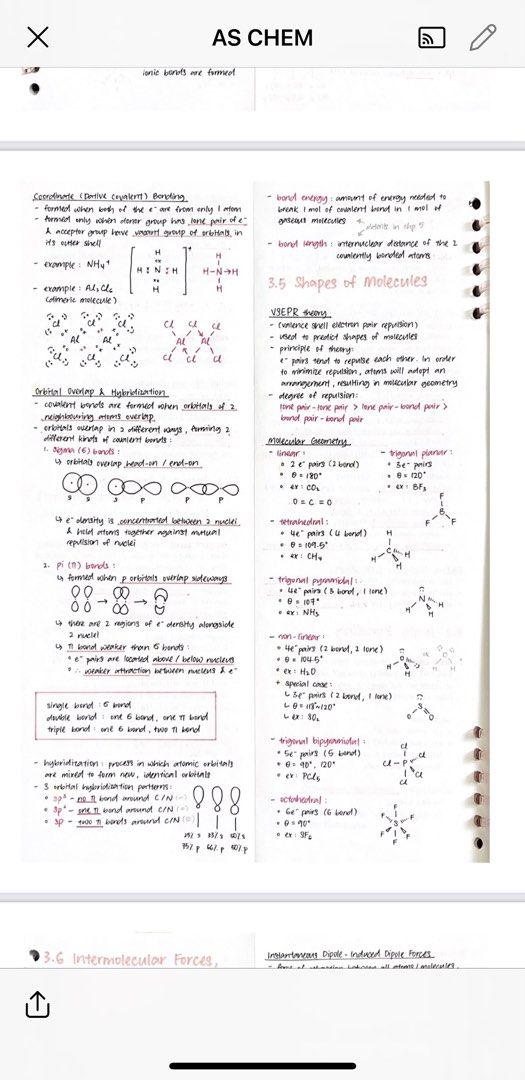 AS CHEM
ionic bonds are formed
Coordinate (Dative Covalent) Bonding
- formed when both of the e⁻ are from only 1 atom
- formed only when donor group has lone pair of e⁻
& acceptor group have vacant group of orbitals in
its outer shell
- example : NH₄⁺
H
H : N : H
H
+
H
H-N→H
H
- example : Al₂Cl₆
(dimeric molecule)
Cl Cl Cl
Al Al
Cl Cl Cl
Cl Cl Cl
Al Al
Cl Cl Cl
Orbital Overlap & Hybridization
- covalent bonds are formed when orbitals of 2
neighbouring atoms overlap.
- orbitals overlap in 2 different ways, forming 2
different kinds of covalent bonds :
1. sigma (б) bonds :
↳ orbitals overlap head-on / end-on
S S S P P P
↳ e⁻ density is concentrated between 2 nuclei
& hold atoms together against mutual
repulsion of nuclei
2. pi (π) bonds :
↳ formed when p orbitals overlap sideways
↳ there are 2 regions of e⁻ density alongside
2 nuclei
↳ π bond weaker than б bonds :
• e⁻ pairs are located above / below nucleus
• ∴ weaker attraction between nucleus & e⁻
single bond : б bond
double bond : one б bond, one π bond
triple bond : one б bond, two π bond
- hybridization : process in which atomic orbitals
are mixed to form new, identical orbitals
- 3 orbital hybridization patterns :
• sp³ - no π bond around C/N
• sp² - one π bond around C/N
• sp - two π bonds around C/N
25% s 33% s 50% s
75% p 66% p 50% p
- bond energy : amount of energy needed to
break 1 mol of covalent bond in 1 mol of
gaseous molecules
details in chp 5
- bond length : internuclear distance of the 2
covalently bonded atoms
3.5 Shapes of Molecules
VSEPR theory
- (valence shell electron pair repulsion)
- used to predict shapes of molecules
- principle of theory:
e⁻ pairs tend to repulse each other. In order
to minimize repulsion, atoms will adopt an
arrangement, resulting in molecular geometry
- degree of repulsion:
lone pair-lone pair > lone pair-bond pair >
bond pair-bond pair
Molecular Geometry
- linear :
• 2 e⁻ pairs (2 bond)
• θ = 180°
• ex : CO₂
O = C = O
- trigonal planar :
• 3e⁻ pairs
• θ = 120°
• ex : BF₃
F
B
F F
- tetrahedral :
• 4e⁻ pairs (4 bond)
• θ = 109.5°
• ex : CH₄
H
C
H H H
- trigonal pyramidal :
• 4e⁻ pairs (3 bond, 1 lone)
• θ = 107°
• ex : NH₃
N
H H H
- non-linear :
• 4e⁻ pairs (2 bond, 2 lone)
• θ = 104.5°
• ex : H₂O
O
H H
+ special case :
↳ 3e⁻ pairs (2 bond, 1 lone)
↳ θ = 118~120°
↳ ex : SO₂
S
O O
- trigonal bipyramidal :
• 5e⁻ pairs (5 bond)
• θ = 90°, 120°
• ex : PCl₅
Cl
Cl
Cl - P
Cl
Cl
- octahedral :
• 6e⁻ pairs (6 bond)
• θ = 90°
• ex : SF₆
F
F F
S
F F
F
3.6 Intermolecular Forces,
Instantaneous Dipole - Induced Dipole Forces